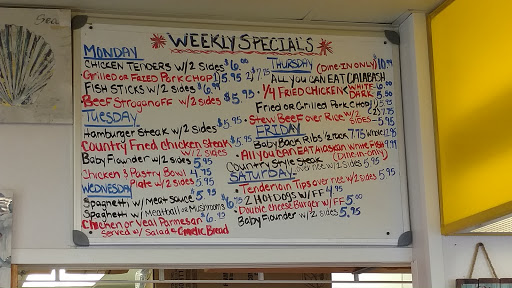 Sea
WEEKLY SPECIALS
MONDAY
CHICKEN TENDERS W/2 SIDES $6.00
Grilled or Fried Pork Chop 1) $5.95 2) 7.75
FISH STICKS W/2 SIDES $6.
BEEF STROGANOFF W/2 SIDES $5.95
TUESDAY
Hamburger Steak w/2 sides $5.95
Country Fried Chicken Steak $5.95
w/2 sides
Baby Flounder w/2 sides 5.95
Chicken & Pastry Bowl 4.75
Plate w/2 sides 5.95
WEDNESDAY
Spaghetti w/ Meat Sauce $5.95
Spaghetti w/ Meatball or Mushrooms $6.
Chicken or Veal Parmesan $6.95
Served w/ Salad & Garlic Bread
THURSDAY (Dine-IN ONLY) $10.99
ALL YOU CAN EAT CALABASH
1/4 FRIED CHICKEN WHITE 6.00
DARK 5.50
Fried or Grilled Pork Chop 1) 5.95
2) 7.75
Stew Beef over Rice w/2 SIDES - 5.95
FRIDAY
Baby Back Ribs 1/2 rack 7.75
All you can eat Alaskan White Fish 9.99
(Dine-in-only)
Country Style Steak over rice w/2 sides 5.95
SATURDAY
Tenderloin Tips over rice w/2 sides 5.95
2 HOT DOGS w/FF 4.95
Double Cheese Burger w/FF 5.00
Baby Flounder w/2 sides 5.95